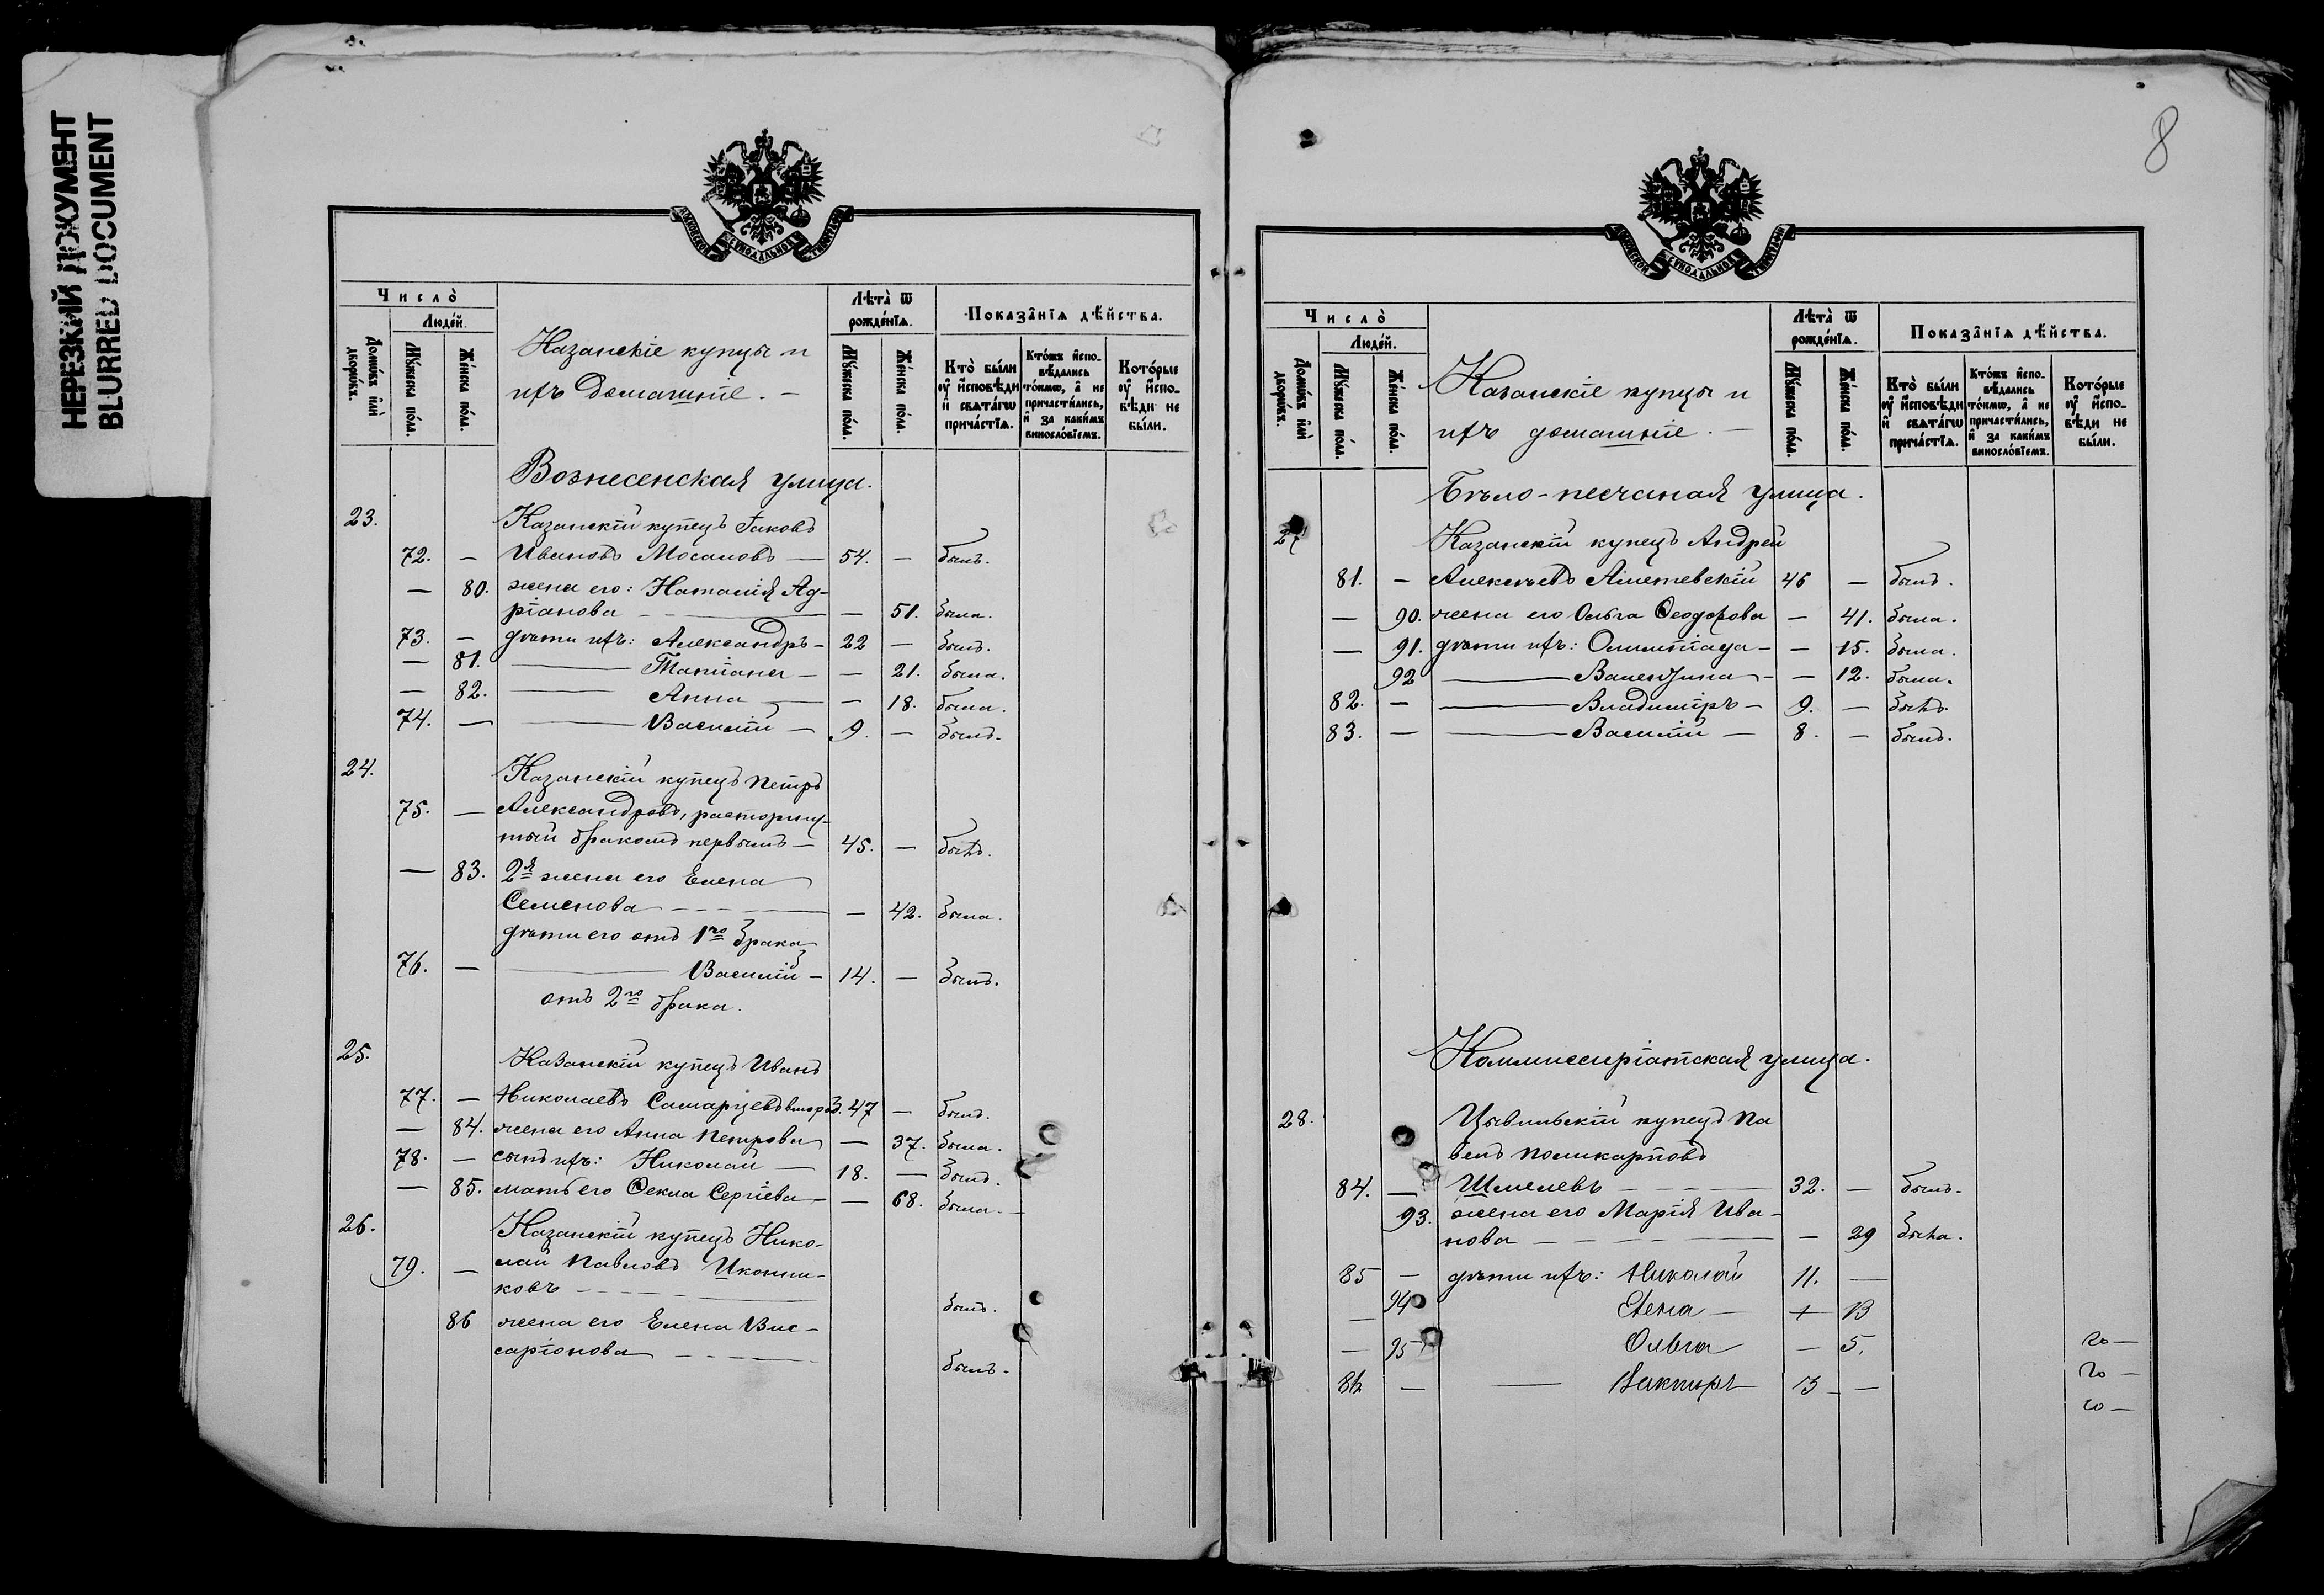 НЕРЕЗКИЙ ДОКУМЕНТ
BLURRED DOCUMENT
МОСКОВСКОЙ СѴНОДАЛЬНОЙ ТИПОГРАФІИ
Число̀
Людéй.
Домѡ́въ и҆лѝ дворѡ́въ.
Мꙋ́жеска по́ла.
Же́нска по́ла.
Казанскіе купцы и
ихъ домашніе. –
Лѣта̀ ѿ рожде́нїѧ.
Мꙋ́жеска по́ла.
Же́нска по́ла.
Показа̑нїѧ дѣ́йства.
Кто̀ бы́ли ᲂу҆ и҆сповѣди и҆ свѧта́гѡ прича́стїѧ.
Кто́жъ и҆спо-вѣдались то́кмѡ, а҆ не причасти́лись, и҆ за каки́мъ винослóвїемъ.
Кото́рые ᲂу҆ и҆спо-вѣди не бы́ли.
Вознесенская улица.
23. Казанскій купецъ Іаковъ
72. – Ивановъ Мосаловъ – 54. – былъ.
– 80. жена его: Наталія Ад-
ріанова – – 51. была.
73. – дѣти ихъ: Александръ – 22 – былъ.
– 81. – Татіана – – 21. была.
– 82. – Анна – – 18. была.
74. – – Василій – 9. – былъ.
24. Казанскій купецъ Петръ
75. – Александровъ, расторгну-
тый бракомъ первымъ – 45. – былъ.
– 83. 2я жена его Елена
Семенова – – – – 42. была.
дѣти его отъ 1го брака
76. – – Василій – 14. – былъ.
отъ 2го брака.
25. Казанскій купецъ Иванъ
77. – Николаевъ 47 – былъ.
– 84. жена его Анна Петрова – 37. была.
78. – сынъ ихъ: Николай – 18. – былъ.
– 85. мать его Ѳекла Сергіева – – 68. была. –
26. Казанскій купецъ Нико-
79. – лай Павловъ Иконни-
ковъ – – – – – былъ.
86 жена его Елена Вис-
саріонова – – – – былъ.
8
МОСКОВСКОЙ СѴНОДАЛЬНОЙ ТИПОГРАФІИ
Число̀
Людéй.
Домѡ́въ и҆лѝ дворѡ́въ.
Мꙋ́жеска по́ла.
Же́нска по́ла.
Казанскіе купцы и
ихъ домашніе. –
Лѣта̀ ѿ рожде́нїѧ.
Мꙋ́жеска по́ла.
Же́нска по́ла.
Показа̑нїѧ дѣ́йства.
Кто̀ бы́ли ᲂу҆ и҆сповѣди и҆ свѧта́гѡ прича́стїѧ.
Кто́жъ и҆спо-вѣдались то́кмѡ, а҆ не причасти́лись, и҆ за каки́мъ винослóвїемъ.
Кото́рые ᲂу҆ и҆спо-вѣди не бы́ли.
Бѣло-песчаная улица.
27 Казанскій купецъ Андрей
81. – Алексѣевъ 46 – былъ.
– 90. жена его Ольга Ѳеодорова – 41. была.
– 91. дѣти ихъ: Олимпіада – – 15. была.
92 – Валентина – – 12. была.
82. – – Владиміръ – 9. – былъ.
83. – – Василій – 8. – былъ.
Коммиссаріатская улица.
28. Цывильскій купецъ Па
велъ Поликарповъ
84. – Шмелевъ – – – – 32. – былъ.
93. жена его Марія Ива-
нова – – – – – – 29 была.
85 – дѣти ихъ: Николай 11. –
– 94 Елена –
– 95 Ольга – 5.
86 – – –